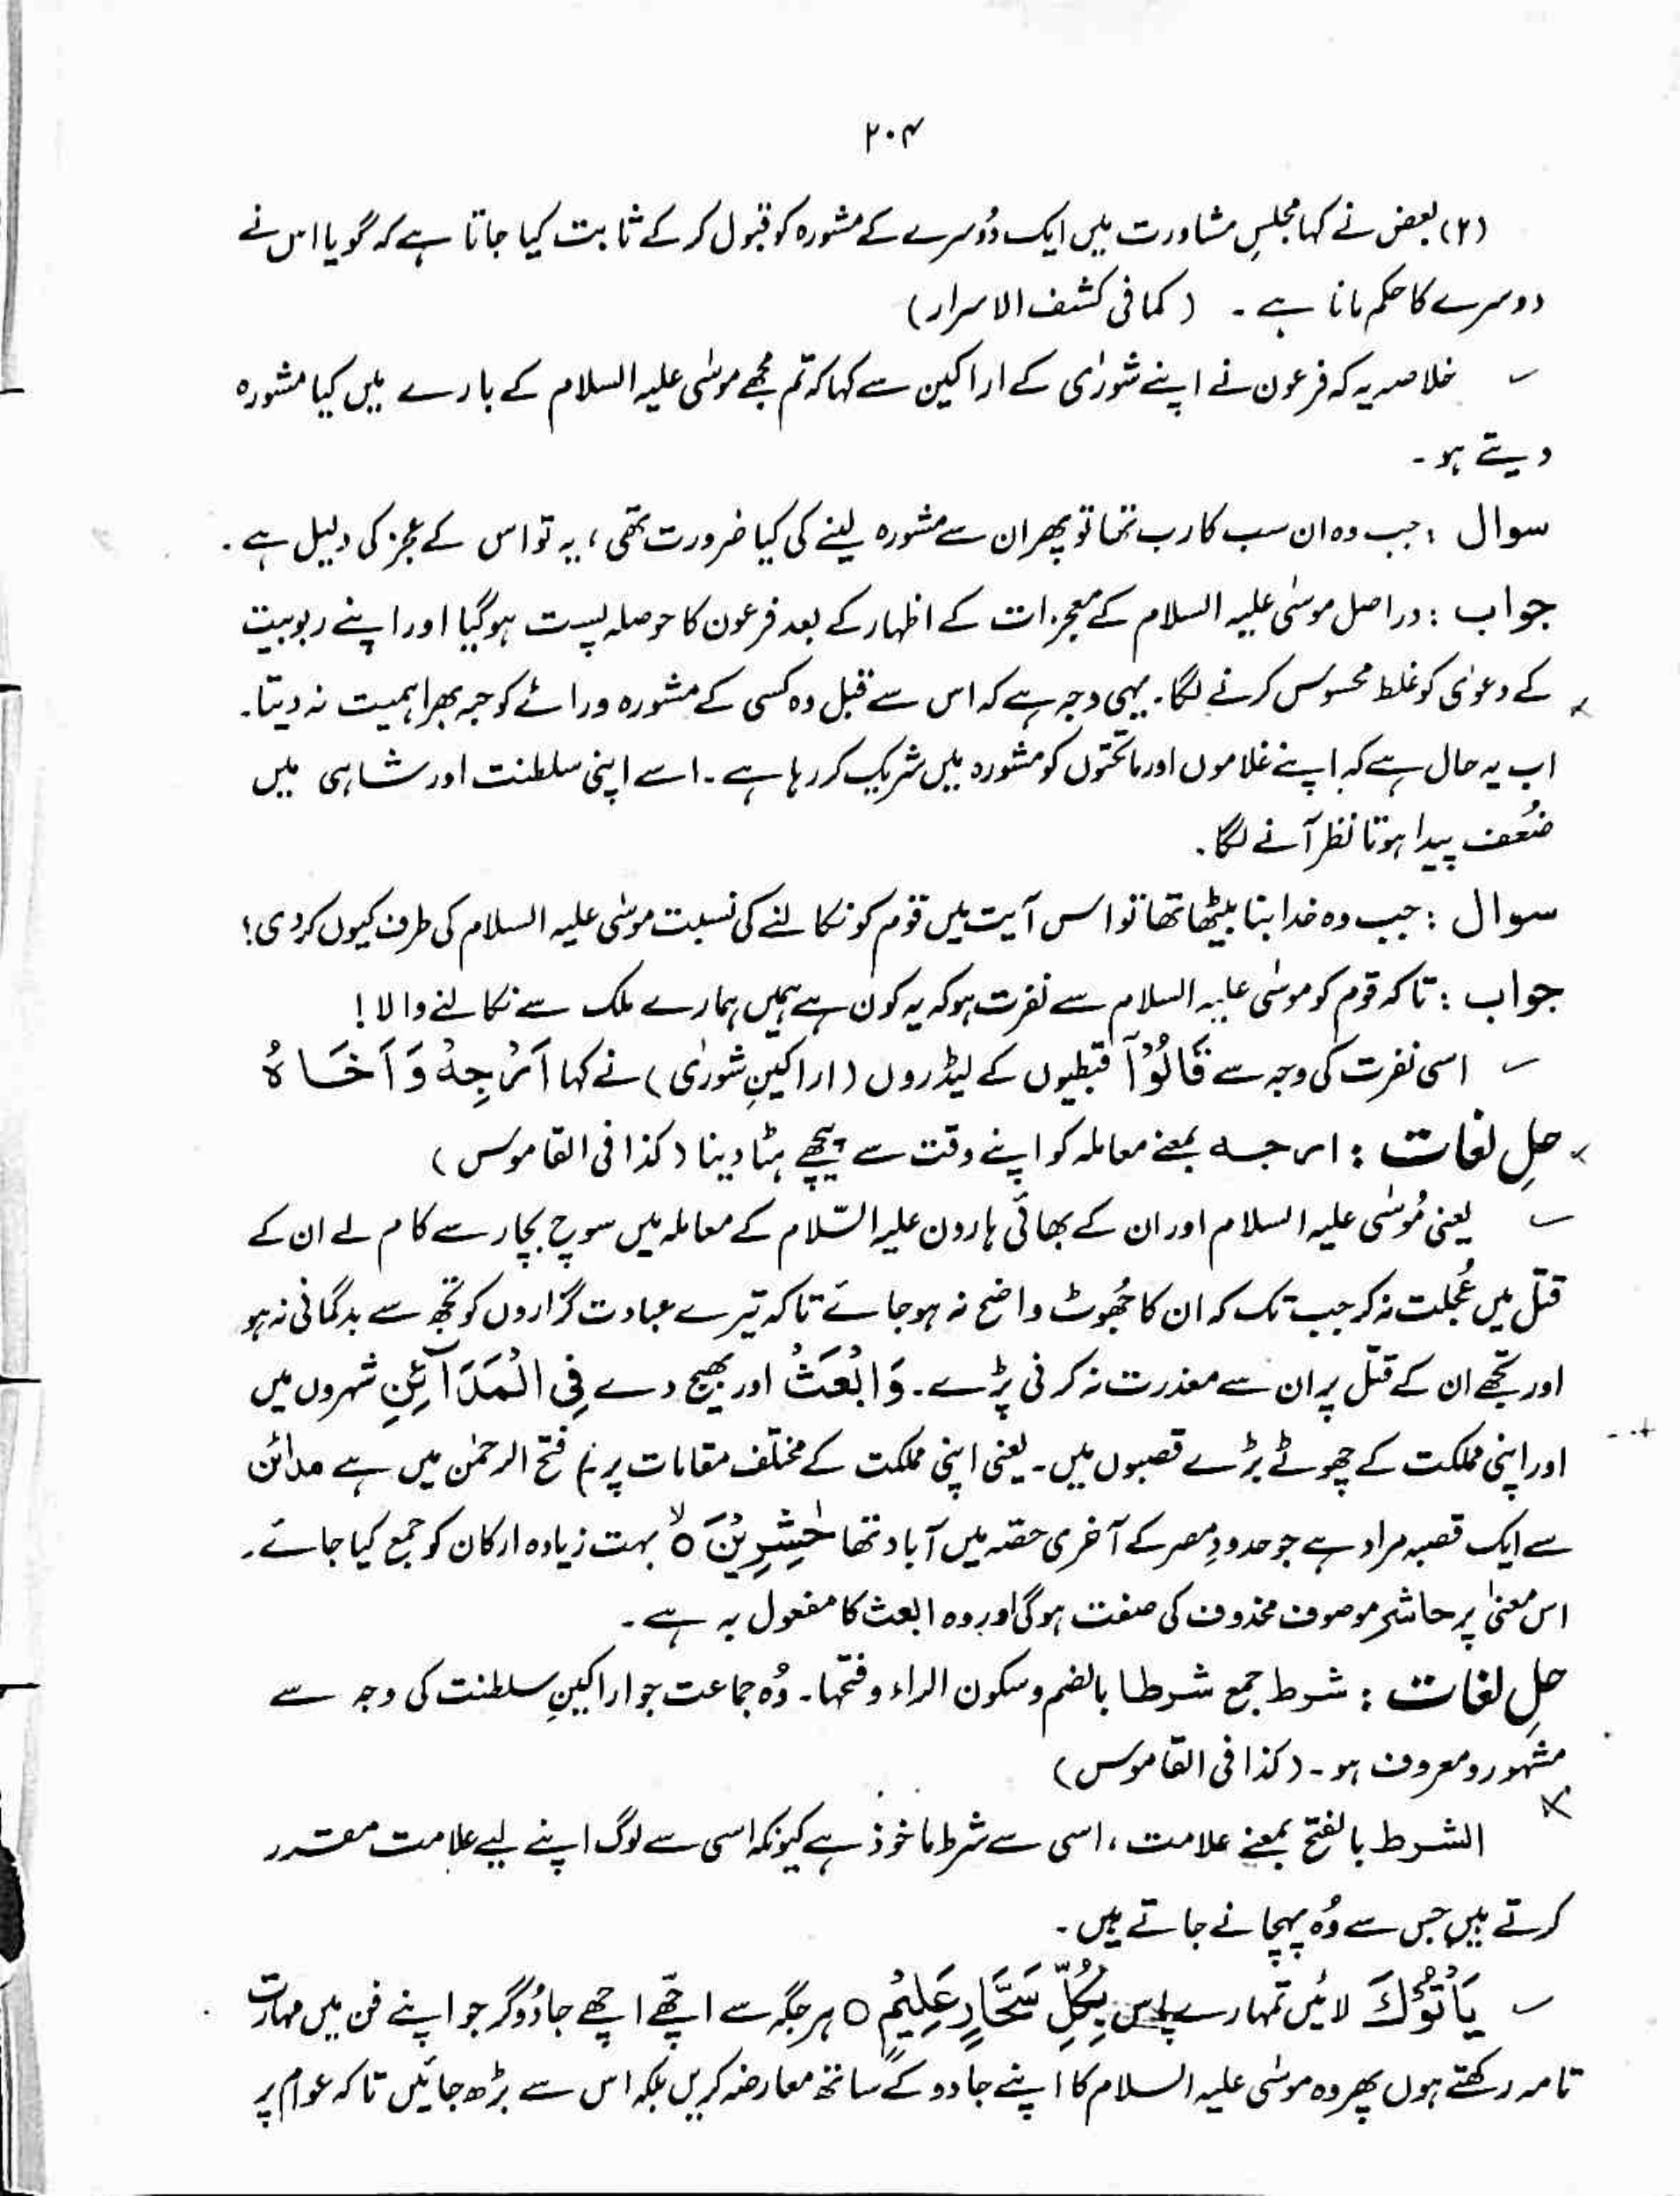 ۲۰۴
(۲) بعض نے کہا مجلسِ مشاورت میں ایک دُوسرے کے مشورہ کو قبول کر کے ثابت کیا جاتا ہے کہ گویا اس نے
دوسرے کا حکم مانا ہے ۔ (کما فی کشف الاسرار)
خلاصہ یہ کہ فرعون نے اپنے شورٰی کے اراکین سے کہا کہ تم مجھے موسٰی علیہ السلام کے بارے میں کیا مشورہ
دیتے ہو ۔
سوال : جب وہ ان سب کا رب تھا تو پھر ان سے مشورہ لینے کی کیا ضرورت تھی ، یہ تو اس کے عجز کی دلیل ہے ۔
جواب : دراصل موسٰی علیہ السلام کے معجزات کے اظہار کے بعد فرعون کا حوصلہ پست ہوگیا اور اپنے ربوبیت
کے دعوٰی کو غلط محسوس کرنے لگا ۔ یہی وجہ ہے کہ اس سے قبل وہ کسی کے مشورہ ورائے کو جو بھر اہمیت نہ دیتا ۔
اب یہ حال ہے کہ اپنے غلاموں اور ماتحتوں کو مشورہ میں شریک کر رہا ہے ۔ اسے اپنی سلطنت اور شاہی میں
ضُعف پیدا ہوتا نظر آنے لگا ۔
سوال : جب وہ خدا بنا بیٹھا تھا تو اس آیت میں قوم کو نکالنے کی نسبت موسٰی علیہ السلام کی طرف کیوں کردی ؟
جواب : تاکہ قوم کو موسٰی علیہ السلام سے نفرت ہو کہ یہ کون ہے ہمیں ہمارے ملک سے نکالنے والا !
اسی نفرت کی وجہ سے قَالُوْۤا قبطیوں کے لیڈروں (اراکینِ شورٰی) نے کہا اَرْجِهْ وَ اَخَاهُ
حلِ لغات : ارجہ بمعنے معاملہ کو اپنے وقت سے پیچھے ہٹا دینا (کذا فی القاموس)
یعنی مُوسٰی علیہ السلام اور ان کے بھائی ہارون علیہ السّلام کے معاملہ میں سوچ بچار سے کام لے ان کے
قتل میں عُجلت نہ کر جب تک کہ ان کا جُھوٹ واضح نہ ہو جائے تاکہ تیرے عبادت گزاروں کو تجھ سے بدگمانی نہ ہو
اور تجھے ان کے قتل پر ان سے معذرت نہ کرنی پڑے ۔ وَ ابْعَثْ اور بھیج دے فِی الْمَدَآئِنِ شہروں میں
اور اپنی مملکت کے چھوٹے بڑے قصبوں میں ۔ یعنی اپنی مملکت کے مختلف مقامات پر فتح الرحمٰن میں ہے مدائن
سے ایک قصبہ مراد ہے جو حدودِ مصر کے آخری حصّہ میں آباد تھا حٰشِرِیْنَ ۙ بہت زیادہ ارکان کو جمع کیا جائے ۔
اس معنٰی پر حاشر موصوف محذوف کی صفت ہوگی اور وہ ابعث کا مفعول بہ ہے ۔
حلِ لغات : شرط جمع شرطا بالضم وسکون الراء وفتحہا ۔ وُہ جماعت جو اراکینِ سلطنت کی وجہ سے
مشہور و معروف ہو ۔ (کذا فی القاموس)
الشرط بالفتح بمعنے علامت ، اسی سے شرط ماخوذ ہے کیونکہ اسی سے لوگ اپنے لیے علامت مقرر
کرتے ہیں جس سے وُہ پہچانے جاتے ہیں ۔
یَاْتُوْكَ لائیں تمہارے پاس بِكُلِّ سَحَّارٍ عَلِیْمٍ ○ ہر جگہ سے اچّھے اچھے جادُوگر جو اپنے فن میں مہارت
تامہ رکھتے ہوں پھر وہ موسٰی علیہ السلام کا اپنے جادو کے ساتھ معارضہ کریں بلکہ اس سے بڑھ جائیں تاکہ عوام پر